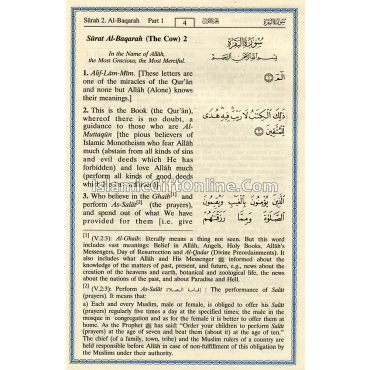 Sûrah 2. Al-Baqarah Part 1
4
الجزء ١
سورة البقرة ٢
Sûrat Al-Baqarah (The Cow) 2
سُورَةُ البَقَرَةِ
In the Name of Allâh,
the Most Gracious, the Most Merciful.
بِسْمِ اللَّهِ الرَّحْمَٰنِ الرَّحِيمِ
1. Alif-Lâm-Mîm. [These letters are
one of the miracles of the Qur'ân
and none but Allâh (Alone) knows
their meanings.]
الٓمٓ ١
2. This is the Book (the Qur'ân),
whereof there is no doubt, a
guidance to those who are Al-
Muttaqûn [the pious believers of
Islamic Monotheism who fear Allâh
much (abstain from all kinds of sins
and evil deeds which He has
forbidden) and love Allâh much
(perform all kinds of good deeds
which He has ordained)].
ذَٰلِكَ الْكِتَٰبُ لَا رَيْبَ فِيهِ هُدًى
لِّلْمُتَّقِينَ ٢
IslamicGiftOnline.Com
3. Who believe in the Ghaib[1] and
perform As-Salât[2] (the prayers),
and spend out of what We have
provided for them [i.e. give
الَّذِينَ يُؤْمِنُونَ بِالْغَيْبِ وَيُقِيمُونَ
الصَّلَوٰةَ وَمِمَّا رَزَقْنَٰهُمْ
[1] (V.2:3): Al-Ghaib: literally means a thing not seen. But this word
includes vast meanings: Belief in Allâh, Angels, Holy Books, Allâh's
Messengers, Day of Resurrection and Al-Qadar (Divine Preordainments). It
also includes what Allâh and His Messenger ﷺ informed about the
knowledge of the matters of past, present, and future, e.g., news about the
creation of the heavens and earth, botanical and zoological life, the news
about the nations of the past, and about Paradise and Hell.
[2] (V.2:3): Perform As-Salât إقامة الصلاة : The performance of Salât
(prayers). It means that:
a) Each and every Muslim, male or female, is obliged to offer his Salât
(prayers) regularly five times a day at the specified times; the male in the
mosque in congregation and as for the female it is to offer them at
home. As the Prophet ﷺ has said: "Order your children to perform Salât
(prayers) at the age of seven and beat them (about it) at the age of ten."
The chief (of a family, town, tribe) and the Muslim rulers of a country are
held responsible before Allâh in case of non-fulfillment of this obligation by
the Muslims under their authority.